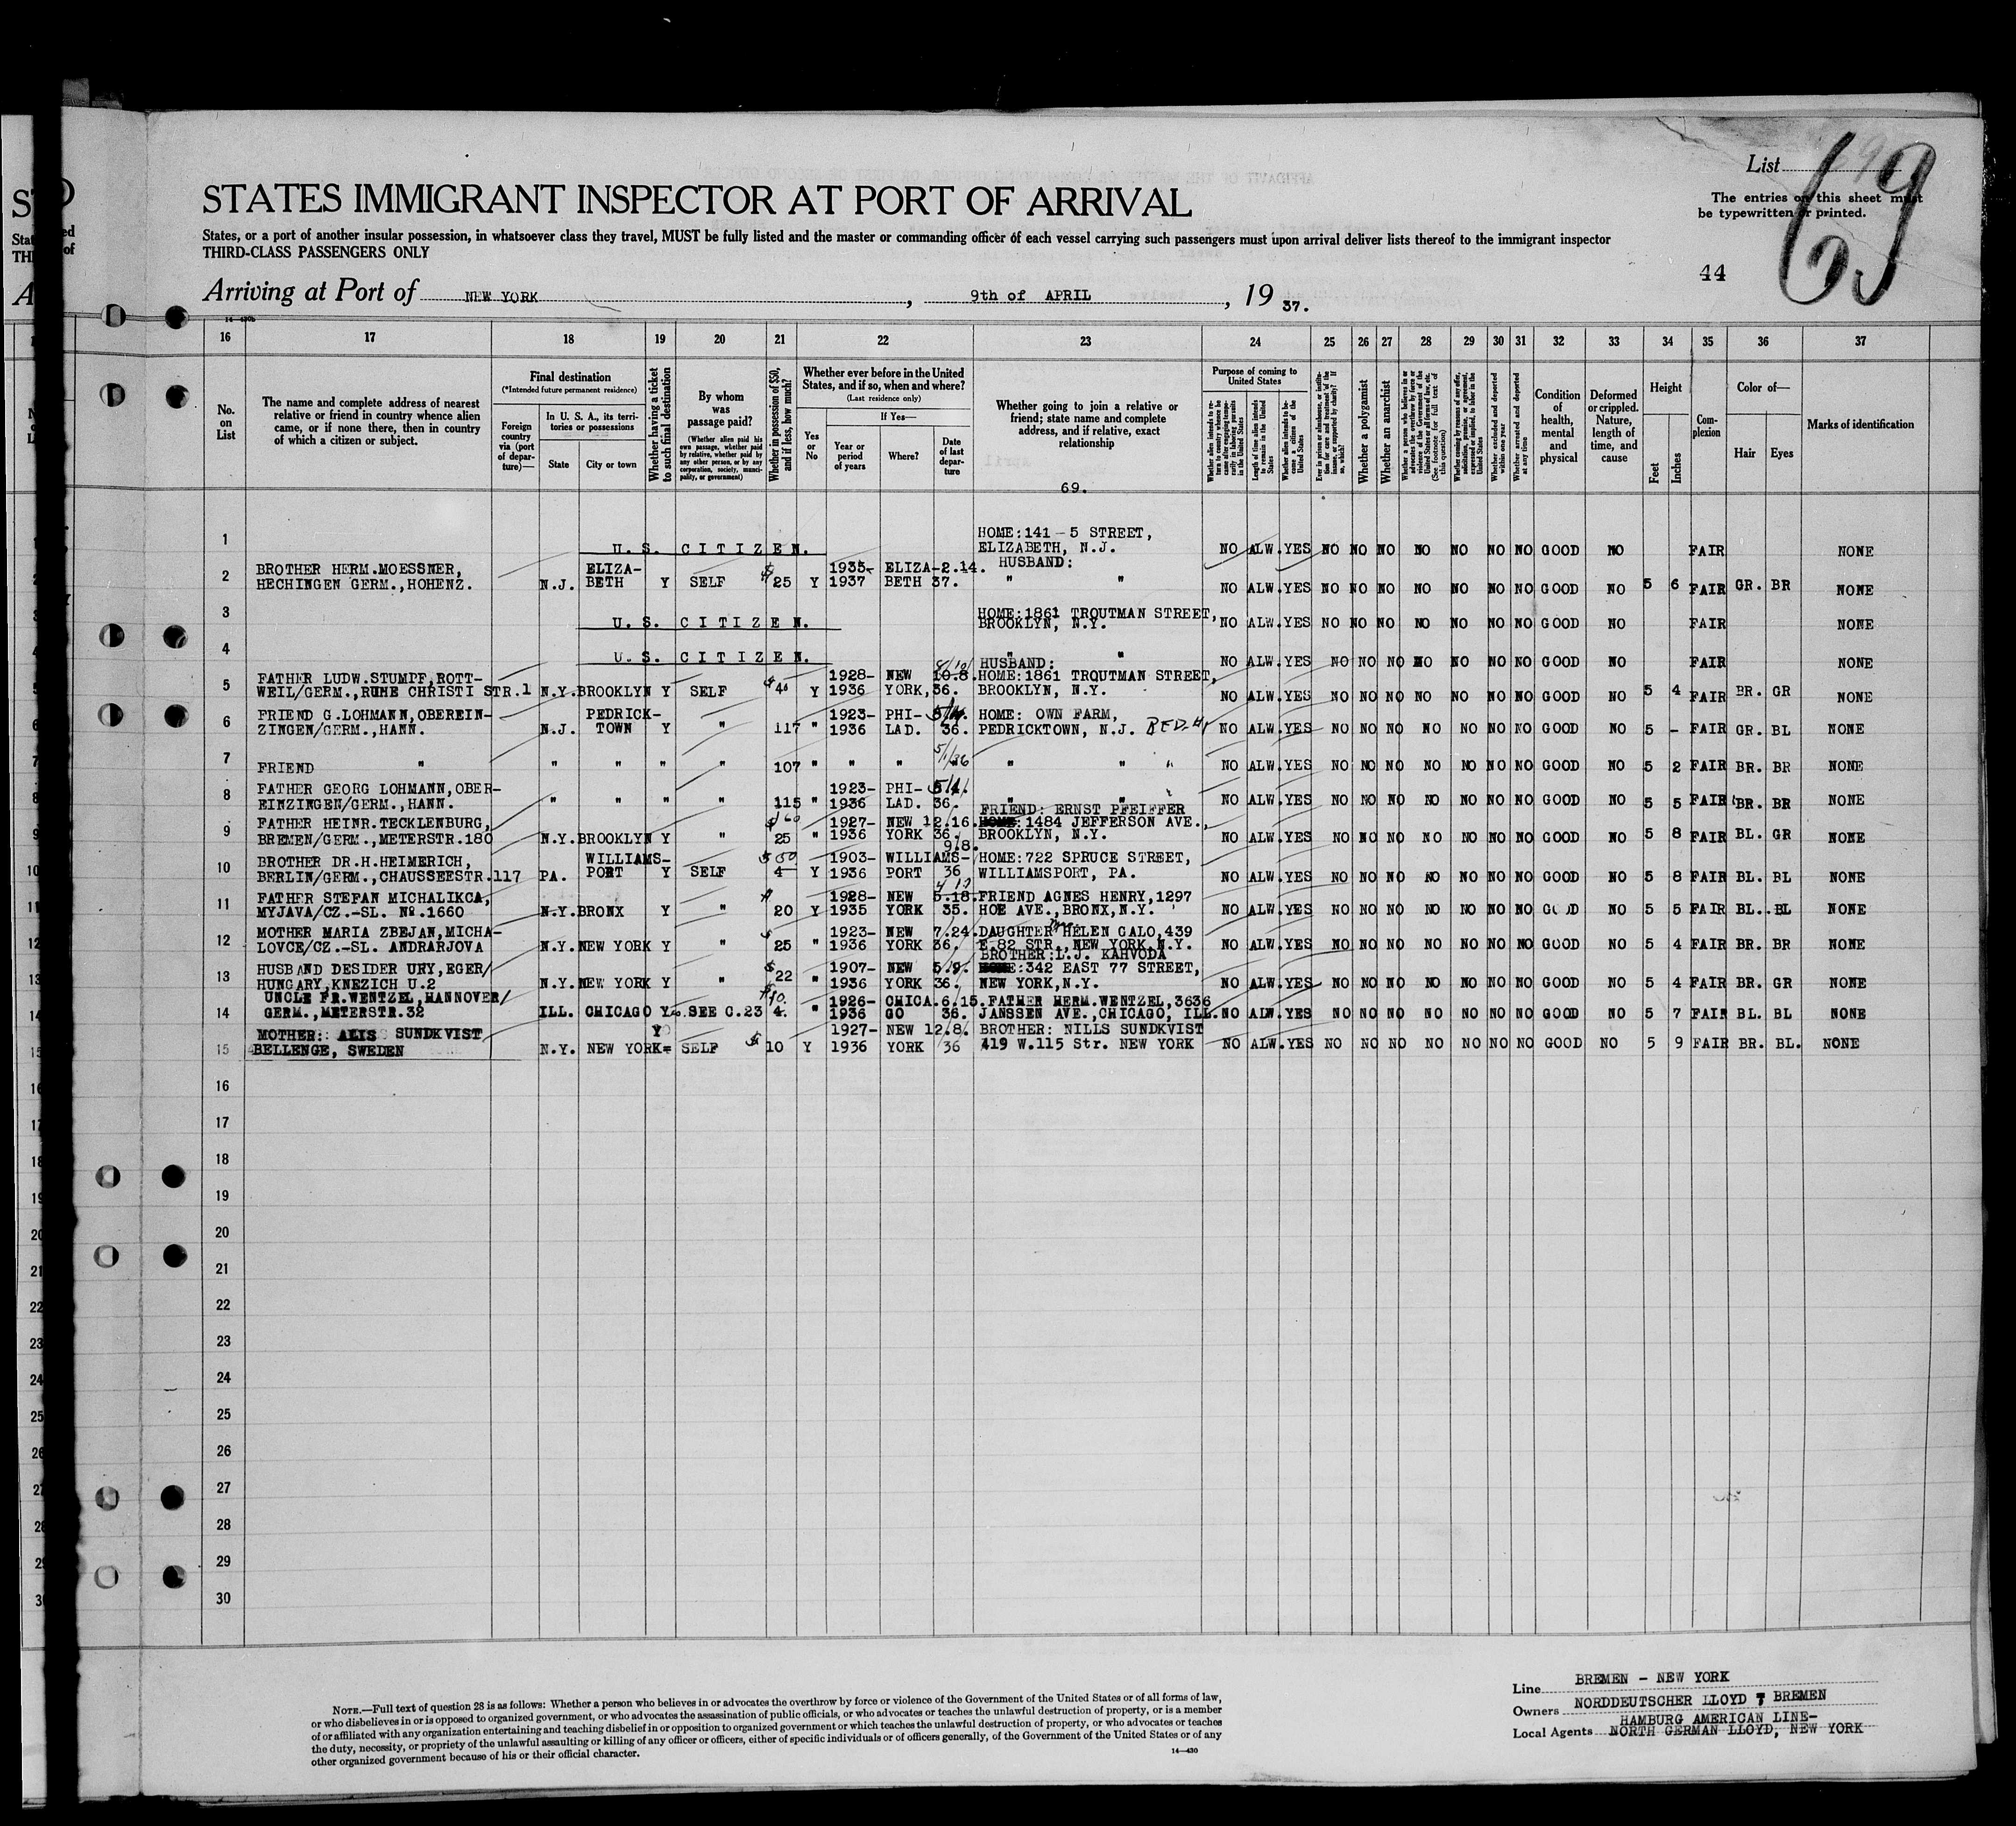 List
69
The entries on this sheet must
be typewritten or printed.
STATES IMMIGRANT INSPECTOR AT PORT OF ARRIVAL
States, or a port of another insular possession, in whatsoever class they travel, MUST be fully listed and the master or commanding officer of each vessel carrying such passengers must upon arrival deliver lists thereof to the immigrant inspector
THIRD-CLASS PASSENGERS ONLY
44
Arriving at Port of NEW YORK, 9th of APRIL, 19 37.
16 17 18 19 20 21 22 23 24 25 26 27 28 29 30 31 32 33 34 35 36 37
No. on List
The name and complete address of nearest
relative or friend in country whence alien
came, or if none there, then in country
of which a citizen or subject.
Final destination
(*Intended future permanent residence)
Foreign country via (port of departure)—
In U. S. A., its territories or possessions
State
City or town
Whether having a ticket to such final destination
By whom was passage paid?
(Whether alien paid his own passage, whether paid by relative, whether paid by any other person, or by any corporation, society, municipality, or government)
Whether in possession of $50, and if less, how much?
Whether ever before in the United
States, and if so, when and where?
(Last residence only)
Yes or No
If Yes—
Year or period of years
Where?
Date of last departure
Whether going to join a relative or
friend; state name and complete
address, and if relative, exact
relationship
69.
Purpose of coming to United States
Whether alien intends to return to country whence he came after engaging temporarily in laboring pursuits in the United States
Length of time alien intends to remain in the United States
Whether alien intends to become a citizen of the United States
Ever in prison or almshouse, or institution for care and treatment of the insane, or supported by charity? If so, which?
Whether a polygamist
Whether an anarchist
(See footnote for full text of this question)
Whether coming by reason of any offer, solicitation, promise, or agreement, expressed or implied, to labor in the United States
Whether excluded and deported within one year
Whether arrested and deported at any time
Condition of health, mental and physical
Deformed or crippled. Nature, length of time, and cause
Height
Feet
Inches
Complexion
Color of—
Hair
Eyes
Marks of identification
HOME:141 - 5 STREET,
1 U. S. CITIZEN. ELIZABETH, N.J. NO ALW. YES NO NO NO NO NO NO NO GOOD NO FAIR NONE
BROTHER HERM.MOESSNER, ELIZA- 1935- ELIZA-2.14. HUSBAND:
2 HECHINGEN GERM.,HOHENZ. N.J. BETH Y SELF $25 Y 1937 BETH 37. " " NO ALW. YES NO NO NO NO NO NO NO GOOD NO 5 6 FAIR GR. BR NONE
HOME:1861 TROUTMAN STREET,
3 U. S. CITIZEN. BROOKLYN, N.Y. NO ALW. YES NO NO NO NO NO NO NO GOOD NO FAIR NONE
4 U. S. CITIZEN. " " NO ALW. YES NO NO NO NO NO NO NO GOOD NO FAIR NONE
HUSBAND:
FATHER LUDW.STUMPF,ROTT- 1928- NEW 10.8. 8/10/ HOME:1861 TROUTMAN STREET,
5 WEIL/GERM.,RUHE CHRISTI STR.1 N.Y. BROOKLYN Y SELF $40 Y 1936 YORK,36. BROOKLYN, N.Y. NO ALW. YES NO NO NO NO NO NO NO GOOD NO 5 4 FAIR BR. GR NONE
FRIEND G.LOHMANN,OBEREIN- PEDRICK- 1923- PHI- HOME: OWN FARM,
6 ZINGEN/GERM.,HANN. N.J. TOWN Y " 117 " 1936 LAD. 36. PEDRICKTOWN, N.J. NO ALW. YES NO NO NO NO NO NO NO GOOD NO 5 - FAIR GR. BL NONE
5/1/36
7 FRIEND " " " " " 107 " " " " " NO ALW. YES NO NO NO NO NO NO NO GOOD NO 5 2 FAIR BR. BR NONE
FATHER GEORG LOHMANN,OBER- 1923- PHI-
8 EINZINGEN/GERM.,HANN. " " " " 115 " 1936 LAD. 36. " " NO ALW. YES NO NO NO NO NO NO NO GOOD NO 5 5 FAIR BR. BR NONE
FRIEND: ERNST PFEIFFER
FATHER HEINR.TECKLENBURG, $160 1927- NEW 12.16. HOME: 1484 JEFFERSON AVE.,
9 BREMEN/GERM.,METERSTR.180 N.Y. BROOKLYN Y 25 " 1936 YORK 36. BROOKLYN, N.Y. NO ALW. YES NO NO NO NO NO NO NO GOOD NO 5 8 FAIR BL. GR NONE
9.8.
BROTHER DR.H.HEIMERICH, WILLIAMS- $50. 1903- WILLIAMS- HOME:722 SPRUCE STREET,
10 BERLIN/GERM.,CHAUSSEESTR.117 PA. PORT Y SELF 4 Y 1936 PORT 36 WILLIAMSPORT, PA. NO ALW. YES NO NO NO NO NO NO NO GOOD NO 5 8 FAIR BL. BL NONE
FATHER STEFAN MICHALIKCA, 1928- NEW 5.18. FRIEND AGNES HENRY,1297
11 MYJAVA/CZ.-SL. Nº.1660 N.Y. BRONX Y " 20 Y 1935 YORK 35. HOE AVE.,BRONX,N.Y. NO ALW. YES NO NO NO NO NO NO NO GOOD NO 5 5 FAIR BL. BL NONE
MOTHER MARIA ZBEJAN,MICHA- 1923- NEW 7.24. DAUGHTER HELEN GALO,439
12 LOVCE/CZ.-SL. ANDRARJOVA N.Y. NEW YORK Y " 25 " 1936 YORK 36. E 82 STR.,NEW YORK,N.Y. NO ALW. YES NO NO NO NO NO NO NO GOOD NO 5 4 FAIR BR. BR NONE
BROTHER:L.J. KAHVODA
HUSBAND DESIDER URY,EGER/ 1907- NEW 5.9. HOME:342 EAST 77 STREET,
13 HUNGARY,KNEZICH U.2 N.Y. NEW YORK Y " $22 " 1936 YORK 36. NEW YORK,N.Y. NO ALW. YES NO NO NO NO NO NO NO GOOD NO 5 4 FAIR BR. GR NONE
UNCLE FR.WENTZEL,HANNOVER/ $10. 1926- CHICA.6.15. FATHER HERM.WENTZEL,3636
14 GERM.,METERSTR.32 ILL. CHICAGO Y SEE C.23 4. " 1936 GO 36. JANSSEN AVE.,CHICAGO, ILL. NO ALW. YES NO NO NO NO NO NO NO GOOD NO 5 7 FAIR BL. BL NONE
MOTHER: ALIS SUNDKVIST Y 1927- NEW 12.8. BROTHER: NILLS SUNDKVIST
15 BELLENGE, SWEDEN N.Y. NEW YORK SELF $10 Y 1936 YORK 36 419 W.115 Str. NEW YORK NO ALW. YES NO NO NO NO NO NO NO GOOD NO 5 9 FAIR BR. BL. NONE
16
17
18
19
20
21
22
23
24
25
26
27
28
29
30
NOTE.—Full text of question 28 is as follows: Whether a person who believes in or advocates the overthrow by force or violence of the Government of the United States or of all forms of law,
or who disbelieves in or is opposed to organized government, or who advocates the assassination of public officials, or who advocates or teaches the unlawful destruction of property, or is a member
of or affiliated with any organization entertaining and teaching disbelief in or opposition to organized government or which teaches the unlawful destruction of property, or who advocates or teaches
the duty, necessity, or propriety of the unlawful assaulting or killing of any officer or officers, either of specific individuals or of officers generally, of the Government of the United States or of any
other organized government because of his or their official character.
14—430
Line BREMEN - NEW YORK
Owners NORDDEUTSCHER LLOYD, BREMEN
HAMBURG AMERICAN LINE-
Local Agents NORTH GERMAN LLOYD, NEW YORK